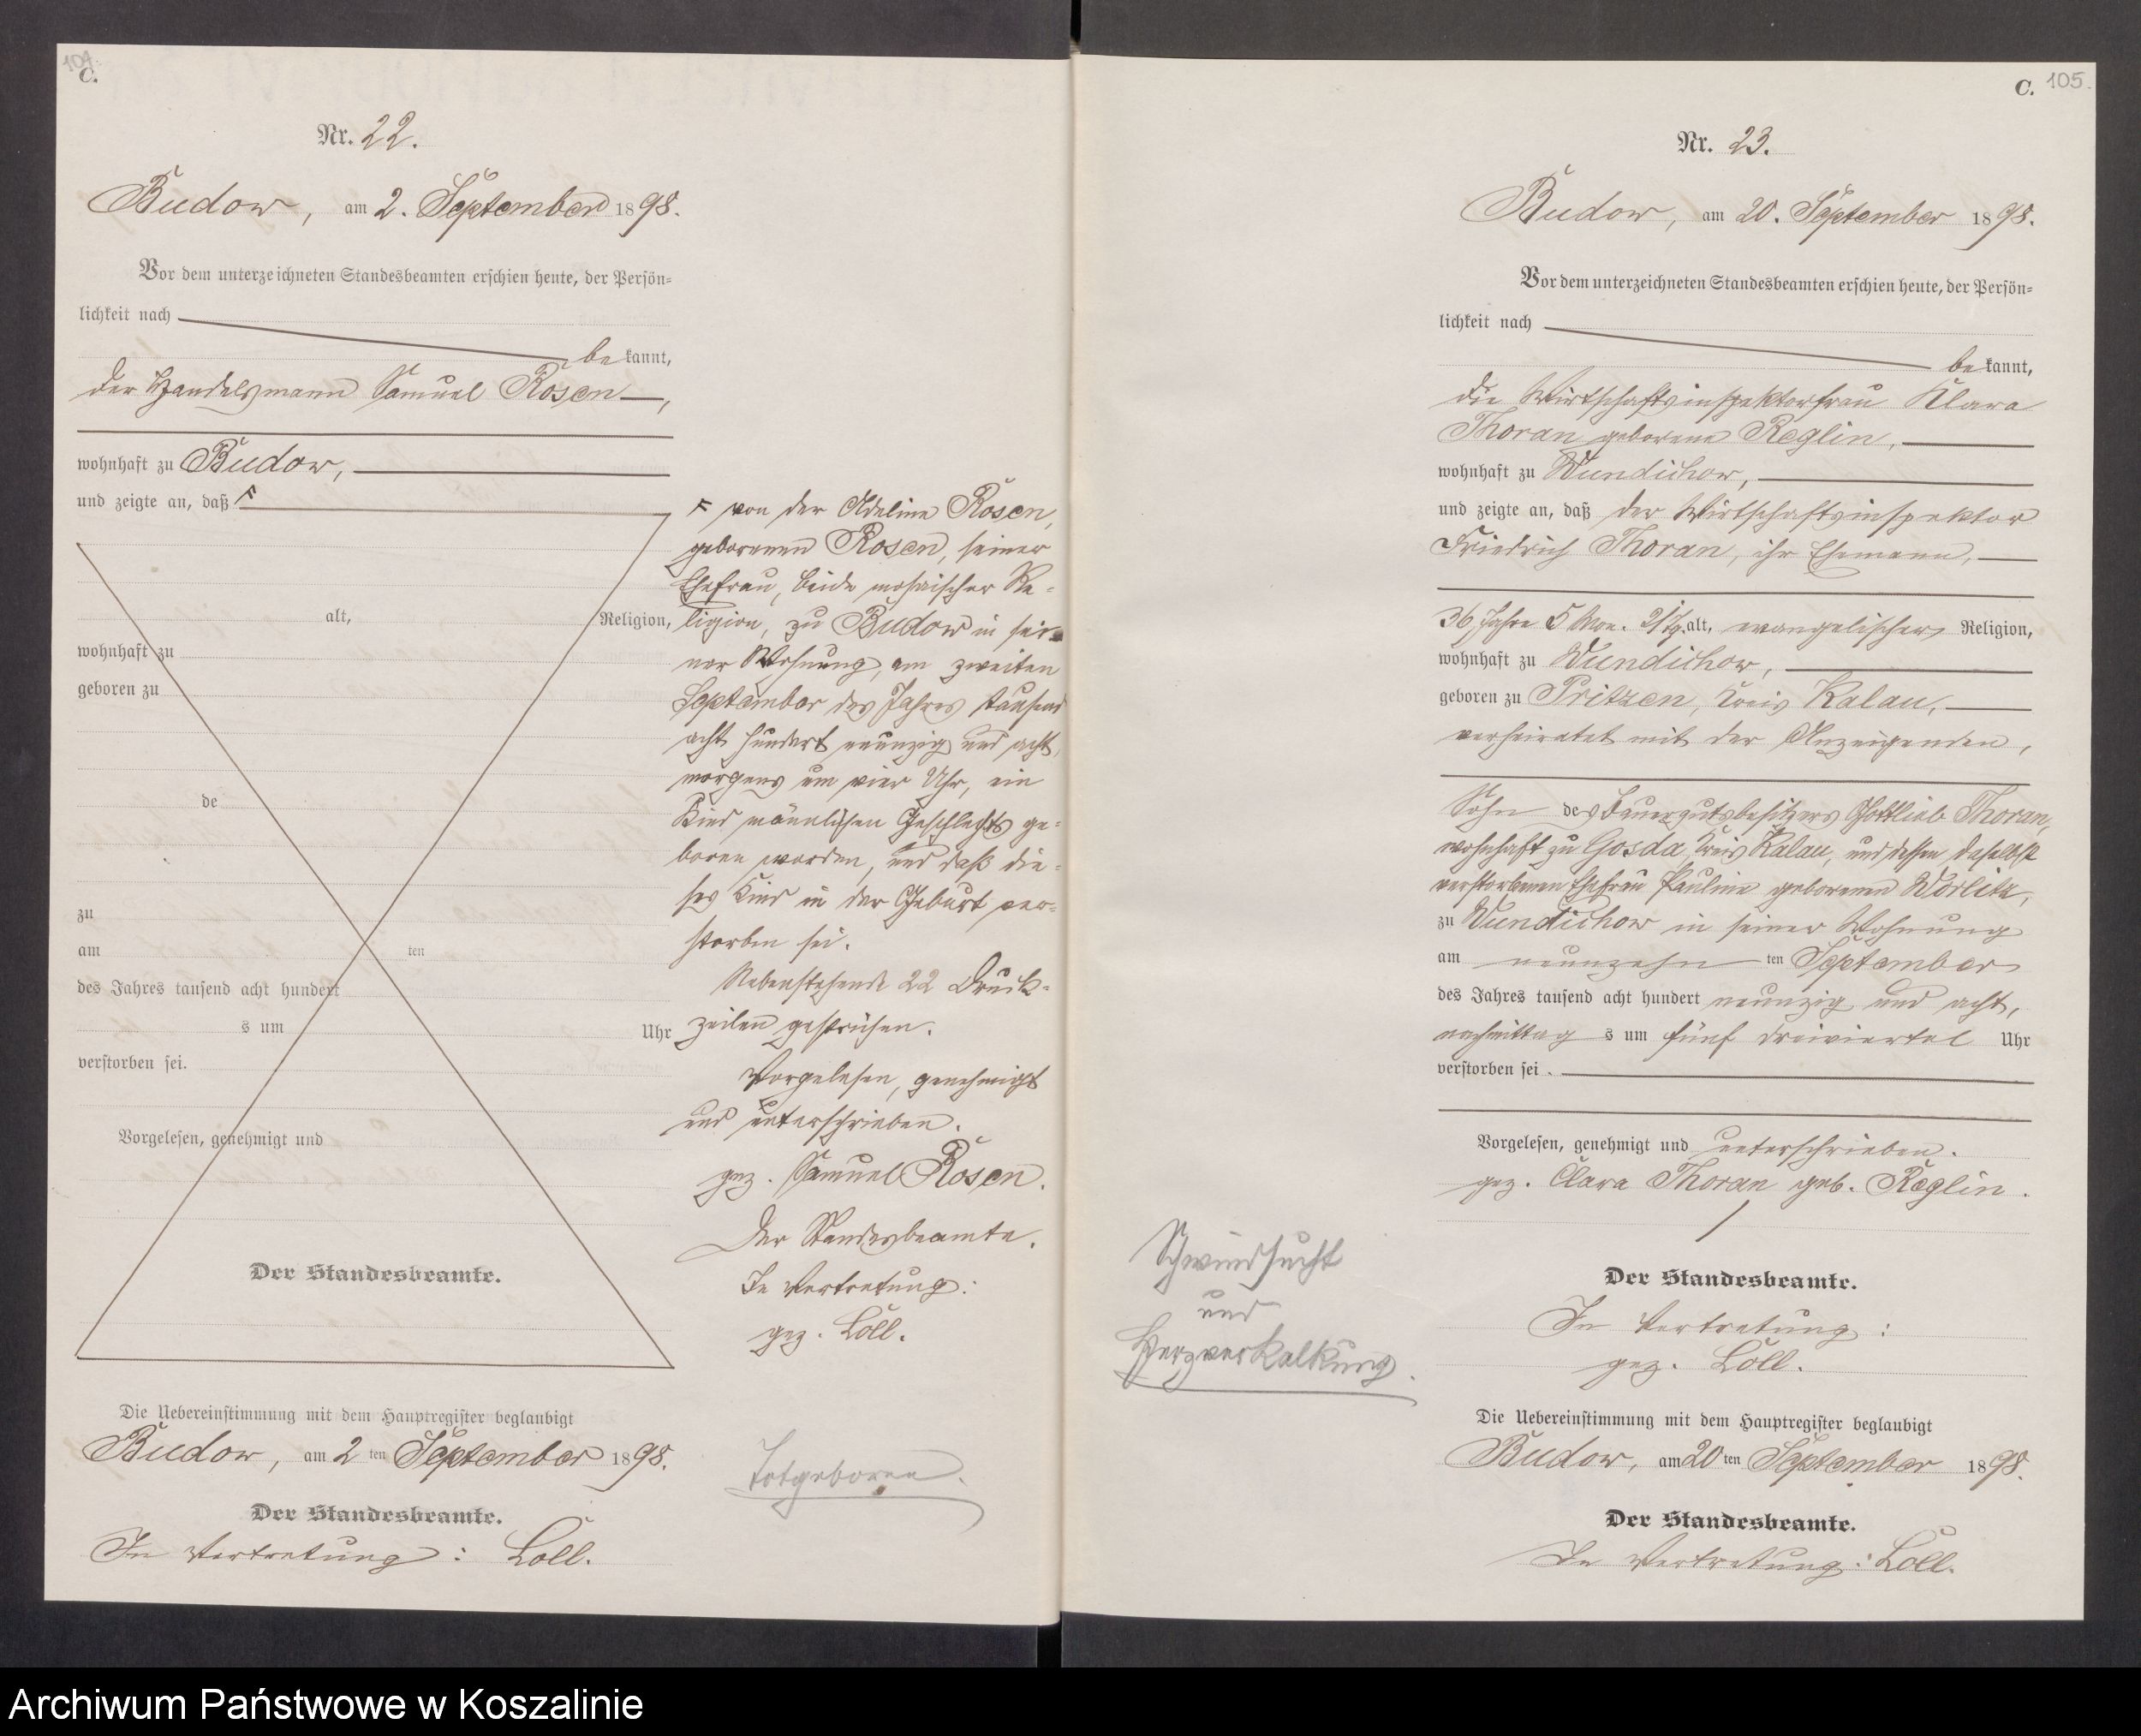 104.
C.
Nr. 22.
Budow, am 2. September 1898.
Vor dem unterzeichneten Standesbeamten erschien heute, der Persön=
lichkeit nach
be kannt,
der Handelsmann Samuel Rosen,
wohnhaft zu Budow,
und zeigte an, daß
alt, Religion,
wohnhaft zu
geboren zu
de
zu
am ten
des Jahres tausend acht hundert
s um Uhr
verstorben sei.
Vorgelesen, genehmigt und
Der Standesbeamte.
von der Adeline Rosen,
geborenen Rosen, seiner
Ehefrau, beide mosaischer Re-
ligion, zu Budow in sei-
ner Wohnung, am zweiten
September des Jahres tausend
acht hundert neunzig und acht,
morgens um vier Uhr, ein
Kind männlichen Geschlechts ge-
boren worden, und daß die-
ses Kind in der Geburt ver-
storben sei.
Nebenstehende 22 Druck-
zeilen gestrichen.
Vorgelesen, genehmigt
und unterschrieben.
gez. Samuel Rosen.
Der Standesbeamte.
In Vertretung:
gez. Löll.
Die Uebereinstimmung mit dem Hauptregister beglaubigt
Budow, am 2 ten September 1898.
Der Standesbeamte.
In Vertretung: Löll.
Totgeboren.
C. 105.
Nr. 23.
Budow, am 20. September 1898.
Vor dem unterzeichneten Standesbeamten erschien heute, der Persön=
lichkeit nach
be kannt,
die Wirtschaftsinspektorfrau Klara
Thoran geborene Reglin,
wohnhaft zu Wundichow,
und zeigte an, daß der Wirtschaftsinspektor
Friedrich Thoran, ihr Ehemann,
36 Jahre 5 Mon. 21 Tg. alt, evangelischer Religion,
wohnhaft zu Wundichow,
geboren zu Pritzen, Kreis Kalau,
verheiratet mit der Anzeigenden,
Sohn des Bauergutsbesitzers Gottlieb Thoran,
wohnhaft zu Gosda, Kreis Kalau, und dessen daselbst
verstorbenen Ehefrau Pauline geborenen Wörlitz,
zu Wundichow in seiner Wohnung
am neunzehn ten September
des Jahres tausend acht hundert neunzig und acht,
nachmittag s um fünf dreiviertel Uhr
verstorben sei.
Vorgelesen, genehmigt und unterschrieben.
gez. Clara Thoran geb. Reglin.
Der Standesbeamte.
In Vertretung:
gez. Löll.
Schwindsucht
und
Herzverkalkung.
Die Uebereinstimmung mit dem Hauptregister beglaubigt
Budow, am 20 ten September 1898.
Der Standesbeamte.
In Vertretung: Löll.
Archiwum Państwowe w Koszalinie